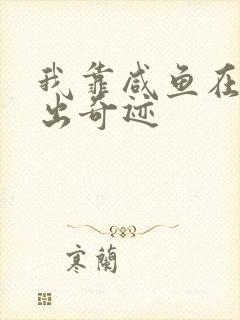 我靠咸鱼在
出奇迹
寒蘭